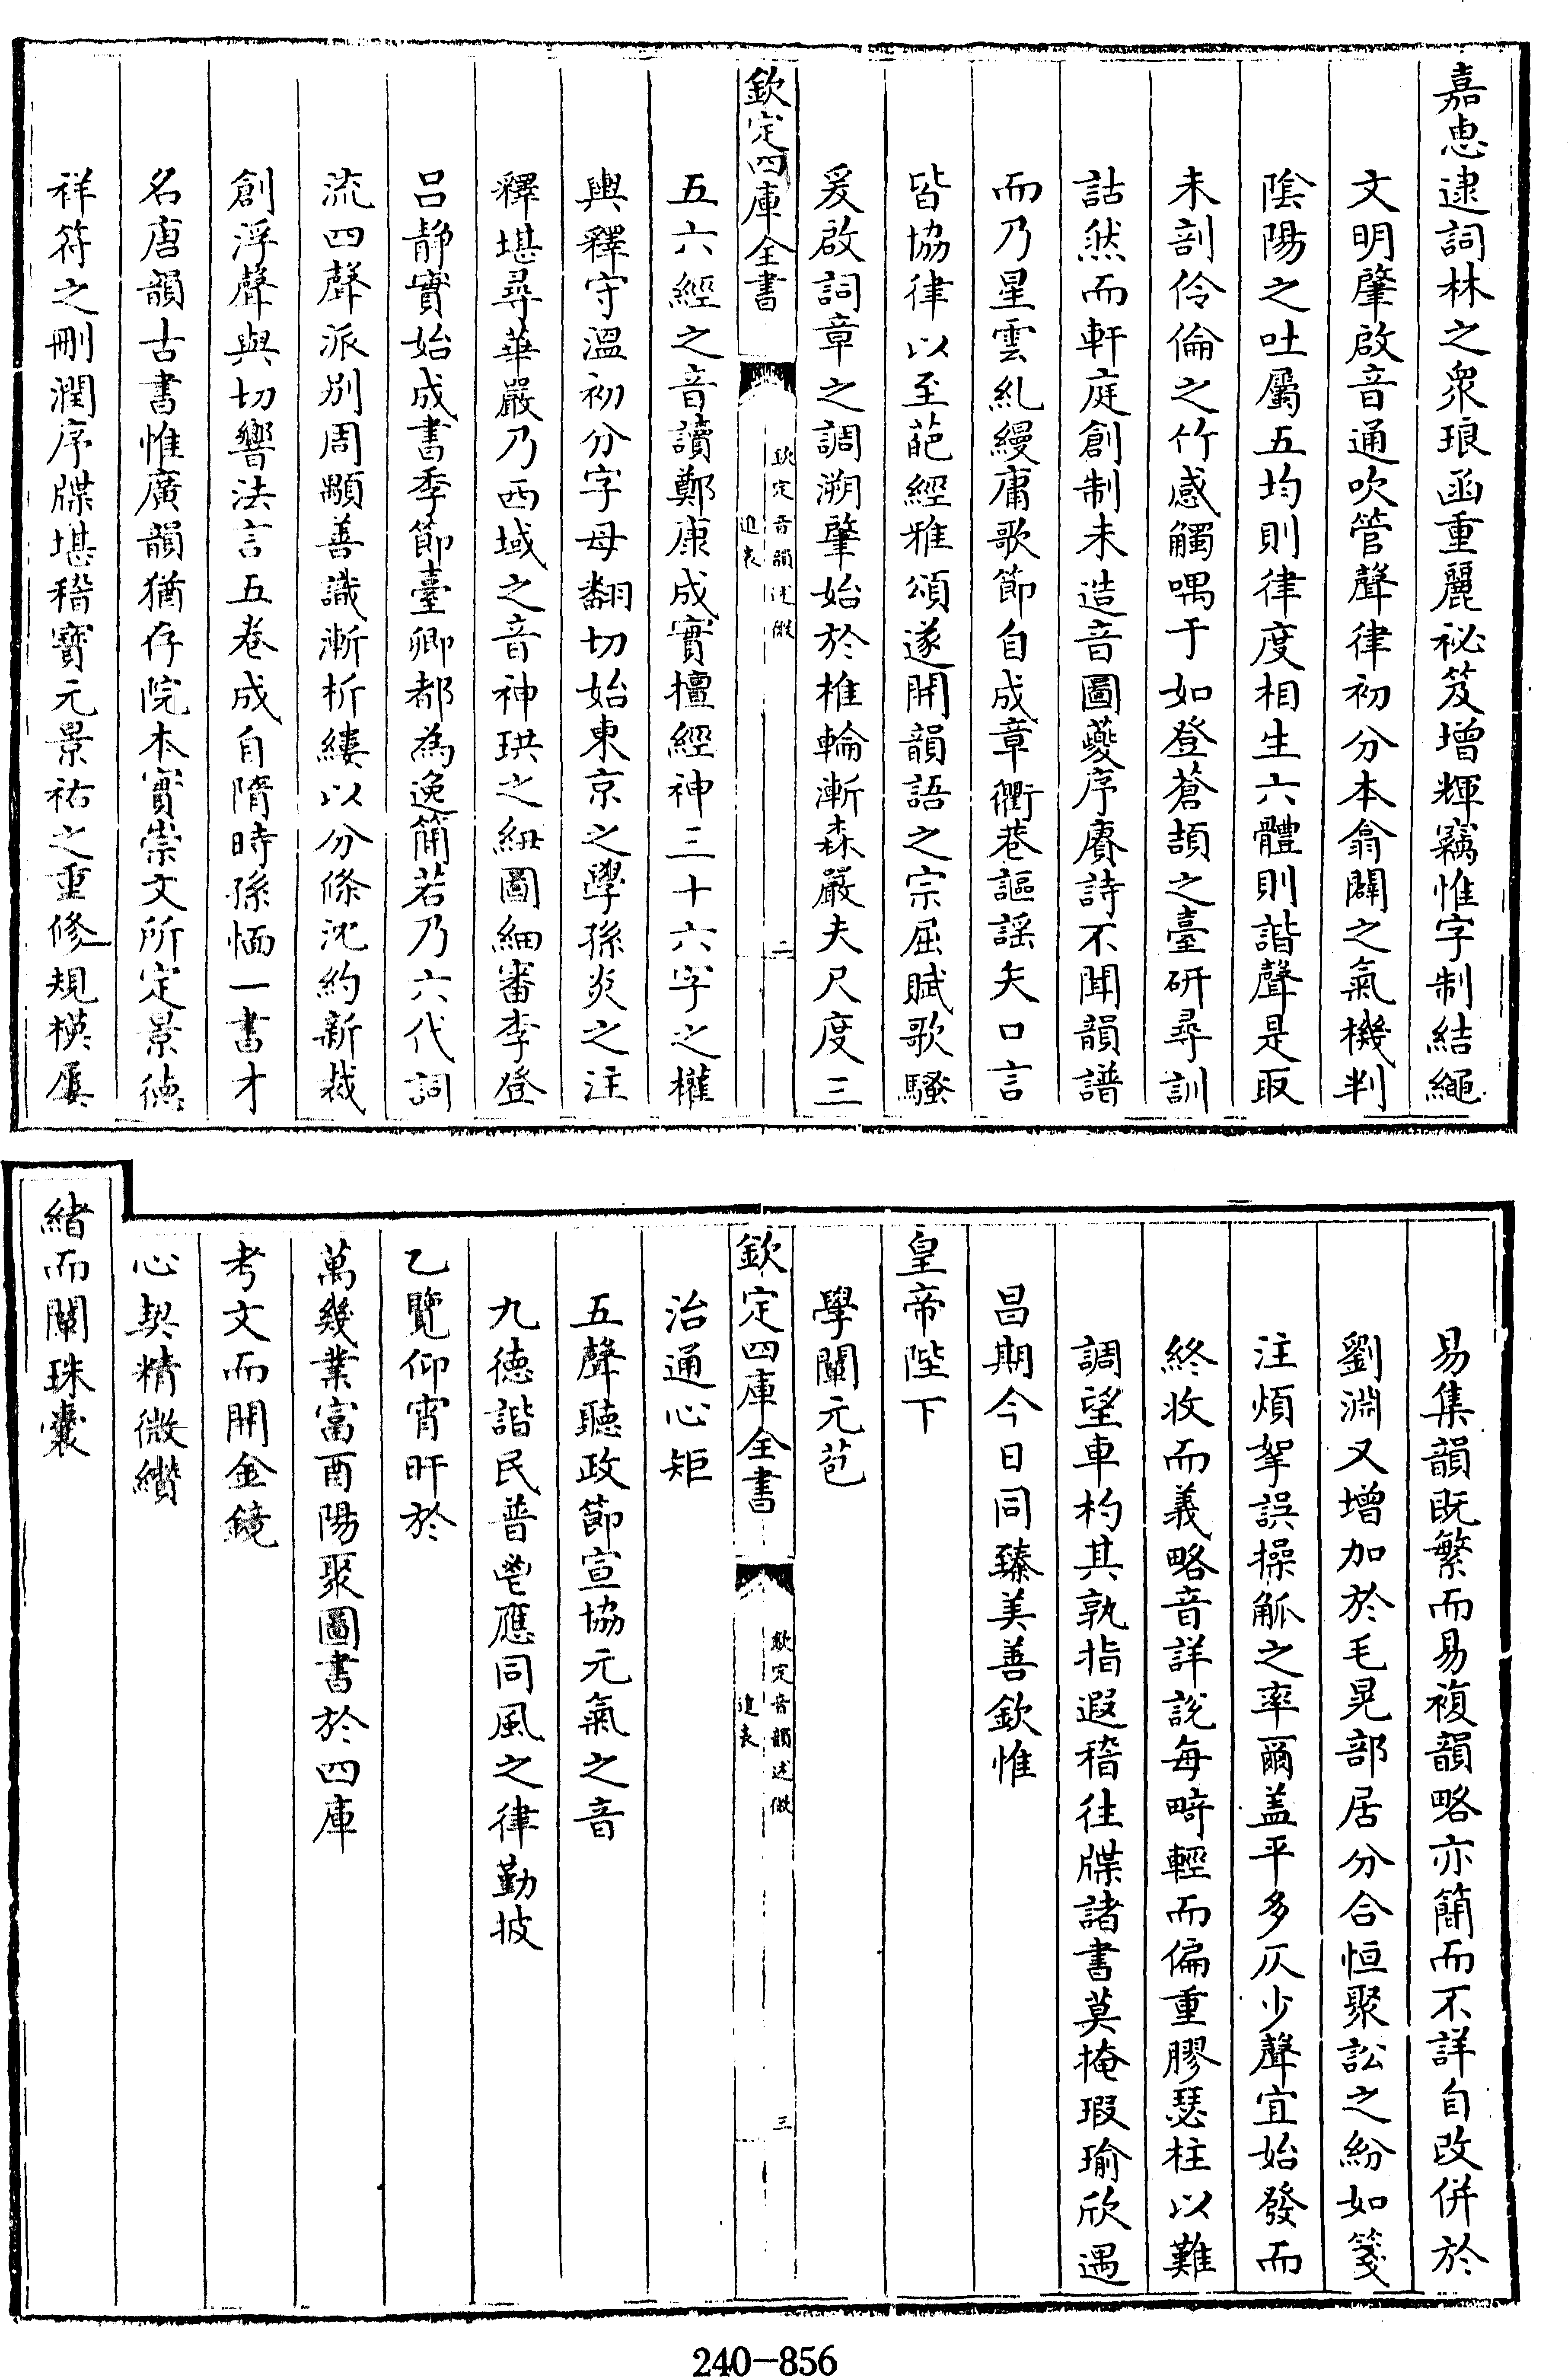 嘉惠逮詞林之衆琅函重麗祕笈增輝竊惟字制結繩
文明肇啟音通吹管聲律初分本翕闢之氣機判
陰陽之吐屬五均則律度相生六體則諧聲是取
未剖伶倫之竹感觸喁于如登蒼頡之臺研尋訓
詁然而軒庭創制未造音圖夔序賡詩不聞韻譜
而乃星雲糺縵庸歌節自成章衢巷謳謠矢口言
皆協律以至葩經雅頌遂開韻語之宗屈賦歌騷
爰啟詞章之調溯肇始於椎輪漸森嚴夫尺度三
欽定四庫全書
欽定音韻述微
進表
二
五六經之音讀鄭康成實檀經神三十六字之權
輿釋守溫初分字母翻切始東京之學孫炎之注
釋堪尋華嚴乃西域之音神珙之紐圖細審李登
呂靜實始成書季節臺卿都為逸簡若乃六代詞
流四聲派別周顒善識漸析縷以分條沈約新裁
創浮聲與切響法言五卷成自隋時孫愐一書才
名唐韻古書惟廣韻猶存院本實崇文所定景德
祥符之刪潤序牒堪稽寶元景祐之重修規模屢
易集韻既繁而易複韻略亦簡而不詳自改併於
劉淵又增加於毛晃部居分合恒聚訟之紛如箋
注煩挐誤操觚之率爾盖平多仄少聲宜始發而
終收而義略音詳說每畸輕而偏重膠瑟柱以難
調望車杓其孰指遐稽往牒諸書莫掩瑕瑜欣遇
昌期今日同臻美善欽惟
皇帝陛下
學闡元苞
欽定四庫全書
欽定音韻述微
進表
三
治通心矩
五聲聽政節宣協元氣之音
九德諧民普邕應同風之律勤披
乙覽仰宵旰於
萬幾業富酉陽聚圖書於四庫
考文而開金鏡
心契精微纘
緒而闡珠囊
240-856